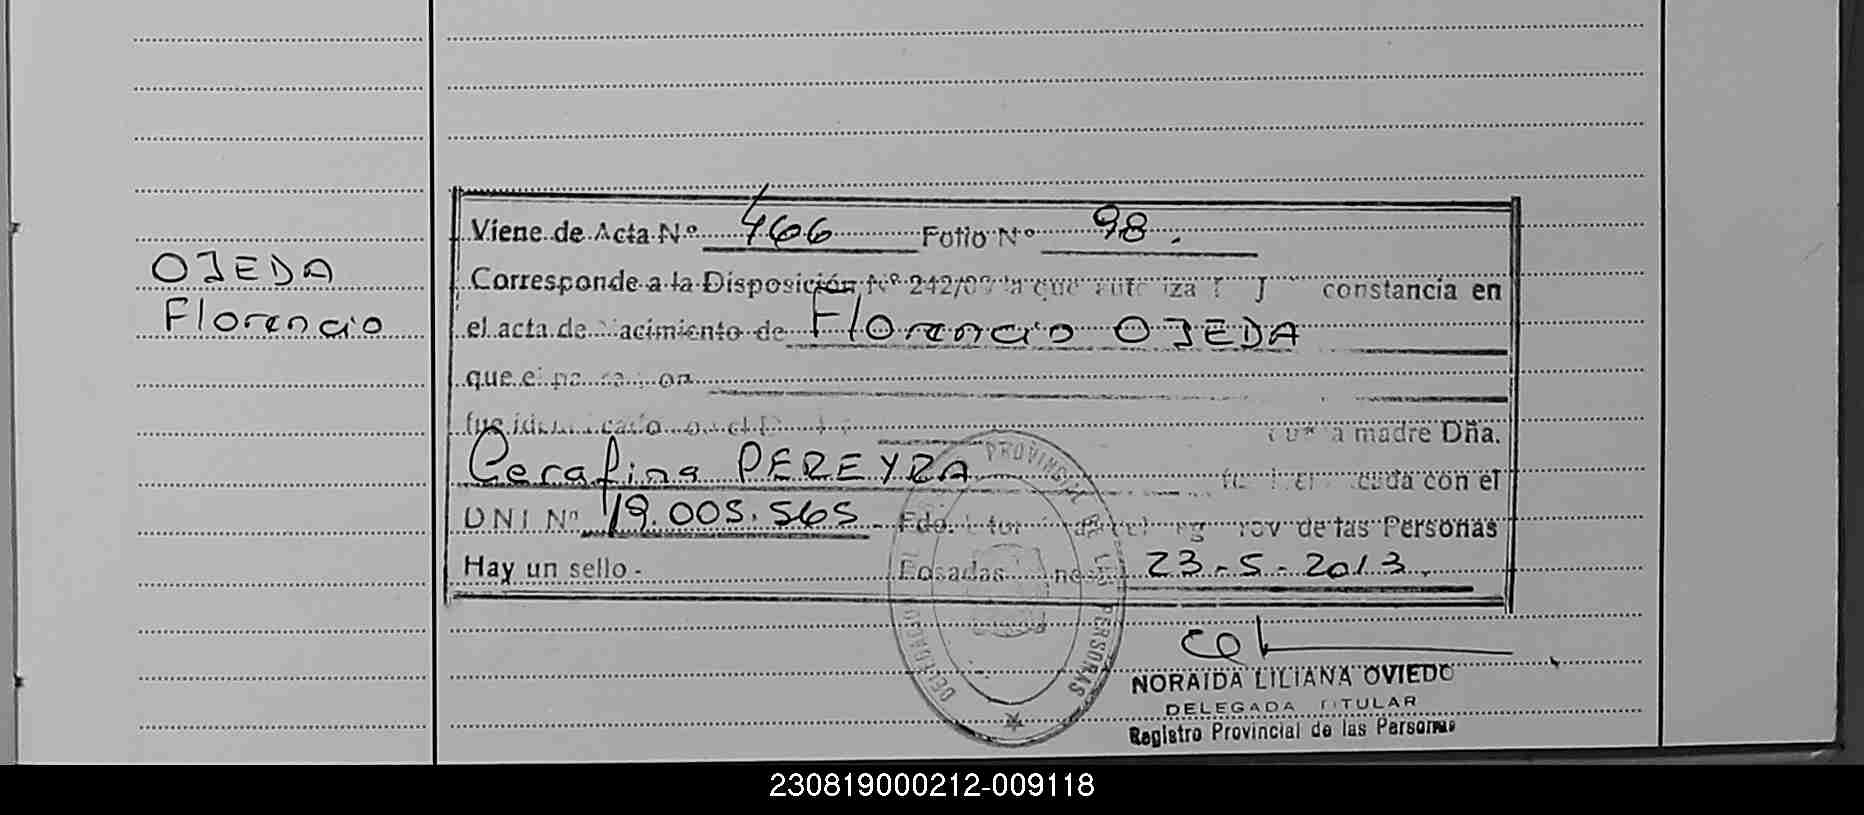 OJEDA
Florencio
Viene de Acta Nº 466 Folio Nº 98.
Corresponde a la Disposición Nº 242/0 que constancia en
el acta de Nacimiento de Florencio OJEDA
que el
fue identificado con el madre Dña.
Cerafina PEREYRA cada con el
DNI Nº 19.005.565 - Fdo. de las Personas
Hay un sello - Posadas 23-5-2013.
DELEGADO PROVINCIAL DE LAS PERSONAS
NORAIDA LILIANA OVIEDO
DELEGADA TITULAR
Registro Provincial de las Personas
230819000212-009118